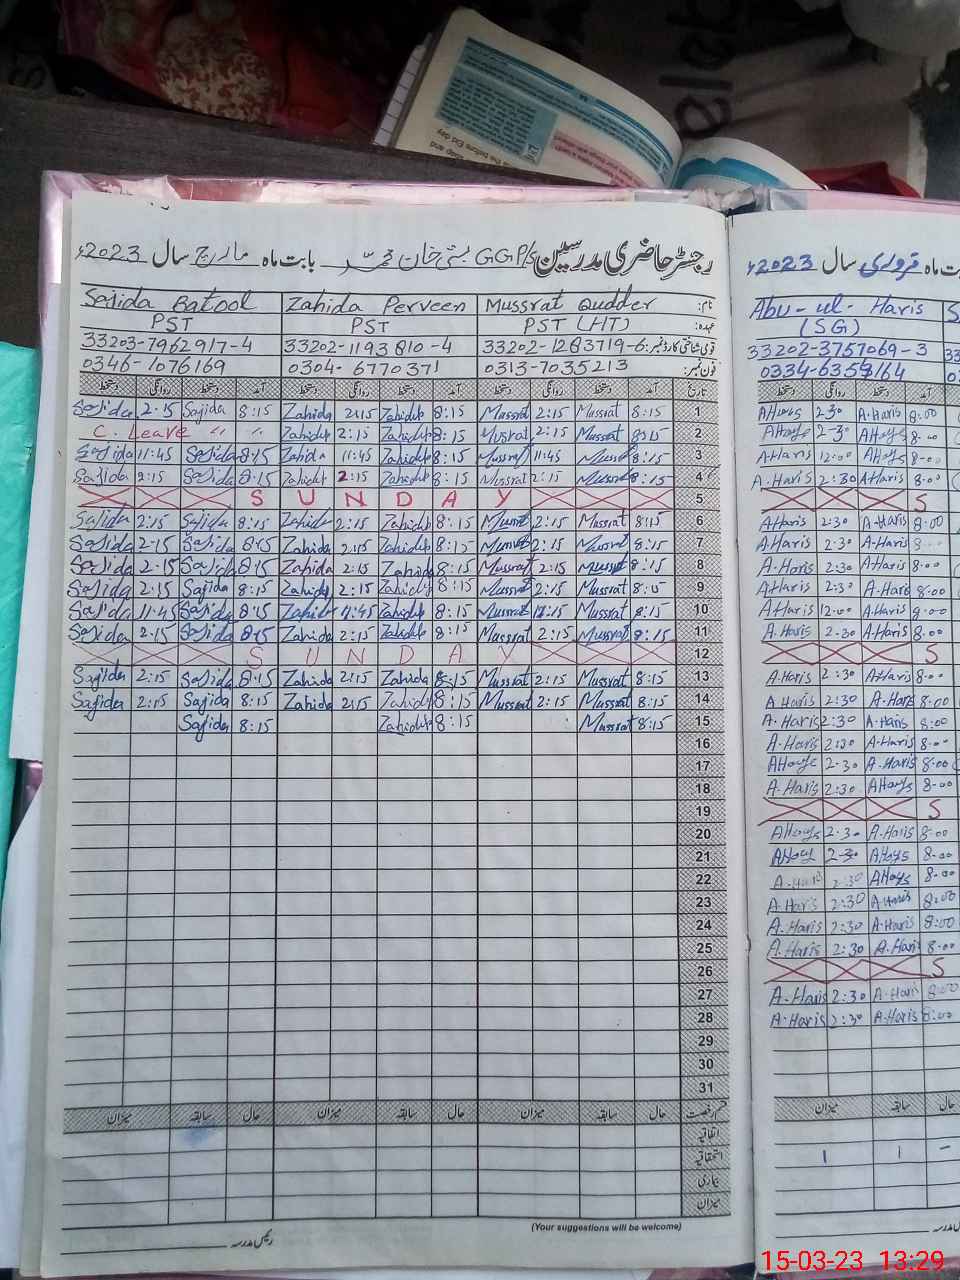 رجسٹر حاضری مدرسین GGP/S بستی خان محمد بابت ماہ مارچ سال 2023ء
نام: Mussrat Qudder Zahida Perveen Sajida Batool
عہدہ: PST (HT) PST PST
قومی شناختی کارڈ نمبر: 33202-1283719-6 33202-1193810-4 33203-7962917-4
فون نمبر: 0313-7035213 0304-6770371 0346-1076169
تاریخ آمد دستخط روانگی دستخط آمد دستخط روانگی دستخط آمد دستخط روانگی دستخط
Sajida 2:15 Sajida 8:15 Zahida 2:15 Zahida 8:15 Mussrat 2:15 Mussrat 8:15 1
C. Leave " " Zahida 2:15 Zahida 8:15 Mussrat 2:15 Mussrat 8:15 2
Sajida 11:45 Sajida 8:15 Zahida 11:45 Zahida 8:15 Mussrat 11:45 Mussrat 8:15 3
Sajida 2:15 Sajida 8:15 Zahida 2:15 Zahida 8:15 Mussrat 2:15 Mussrat 8:15 4
S U N D A Y 5
Sajida 2:15 Sajida 8:15 Zahida 2:15 Zahida 8:15 Mussrat 2:15 Mussrat 8:15 6
Sajida 2:15 Sajida 8:15 Zahida 2:15 Zahida 8:15 Mussrat 2:15 Mussrat 8:15 7
Sajida 2:15 Sajida 8:15 Zahida 2:15 Zahida 8:15 Mussrat 2:15 Mussrat 8:15 8
Sajida 2:15 Sajida 8:15 Zahida 2:15 Zahida 8:15 Mussrat 2:15 Mussrat 8:15 9
Sajida 11:45 Sajida 8:15 Zahida 11:45 Zahida 8:15 Mussrat Mussrat 8:15 10
Sajida 2:15 Sajida 8:15 Zahida 2:15 Zahida 8:15 Mussrat 2:15 Mussrat 8:15 11
S U N D A Y 12
Sajida 2:15 Sajida 8:15 Zahida 2:15 Zahida 8:15 Mussrat 2:15 Mussrat 8:15 13
Sajida 2:15 Sajida 8:15 Zahida 2:15 Zahida 8:15 Mussrat 2:15 Mussrat 8:15 14
Sajida 8:15 Zahida 8:15 Mussrat 8:15 15
16
17
18
19
20
21
22
23
24
25
26
27
28
29
30
31
قسم رخصت حال سابقہ میزان حال سابقہ میزان حال سابقہ میزان
اتفاقیہ
استحقاقیہ
بیماری
میزان
(Your suggestions will be welcome)
رئیس مدرسہ
ماہ فروری سال 2023ء
Abu-ul-Haris
(SG)
33202-3757069-3
0334-6359164
آمد دستخط روانگی دستخط
A Hays 2-30 A.Haris 8:00
A Hays 2-30 A Hays 8-00
A Haris 12-00 A Hays 8-00
A.Haris 2:30 A.Haris 8-00
S
A.Haris 2:30 A.Haris 8:00
A.Haris 2:30 A.Haris
A.Haris 2:30 A.Haris 8:00
A.Haris 2:30 A.Haris 8:00
A.Haris 12-00 A.Haris 8:00
A.Haris 2-30 A.Haris 8-00
S
A.Haris 2:30 A.Haris 8-00
A Haris 2:30 A.Haris 8-00
A.Haris 2:30 A.Haris 8:00
A.Haris 2:30 A.Haris 8-00
A Hays 2-30 A.Haris 8-00
A.Haris 2:30 A Hays 8-00
S
A Hays 2-30 A.Haris 8-00
A Hays 2-30 A Hays 8-00
A.Haris 2:30 A Hays 8-00
A.Haris 2:30 A.Haris 8:00
A.Haris 2:30 A.Haris 8:00
A.Haris 2:30 A.Haris 8-00
S
A.Haris 2:30 A.Haris 8:00
A.Haris 2:30 A.Haris 8:00
حال سابقہ میزان
1 1 -
15-03-23 13:29